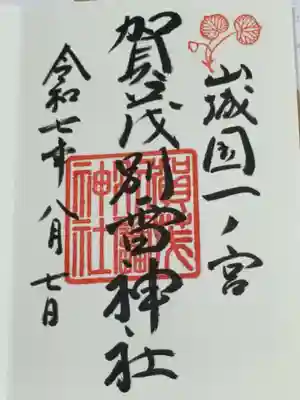 山城国一ノ宮
賀茂別雷神社
賀茂別雷神社
令和七年八月七日